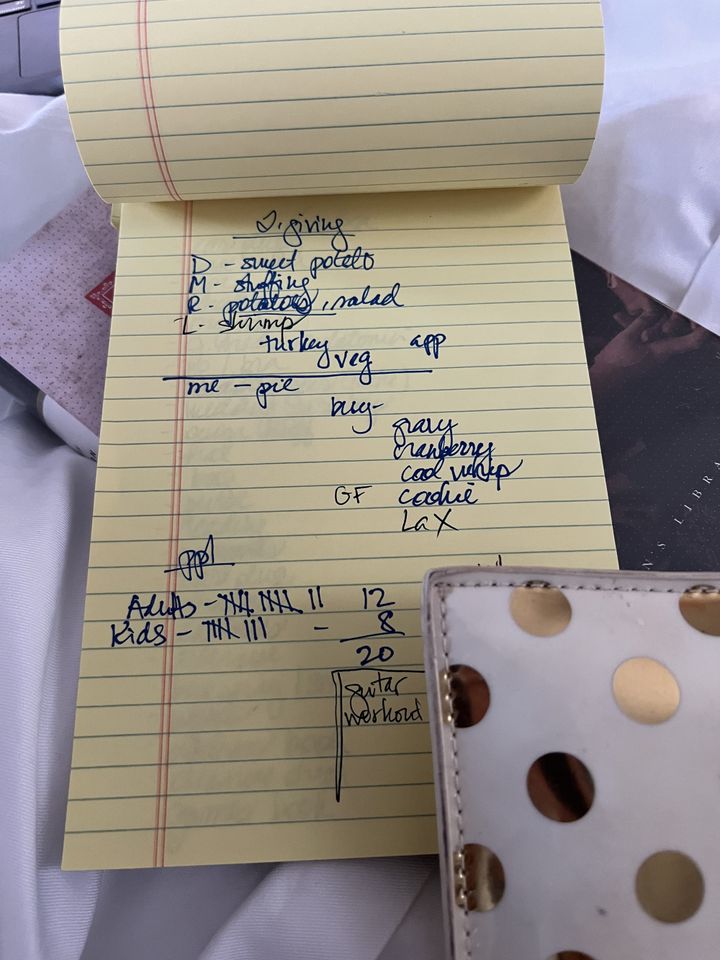 T-giving
D - sweet potato
M - stuffing
R - potatoes, salad
L - shrimp
turkey app
veg
me - pie
buy -
gravy
cranberry
cool whip
GF cookie
LaX
ppl
Adults - 卌 卌 || 12
Kids - 卌 ||| - 8
20
guitar